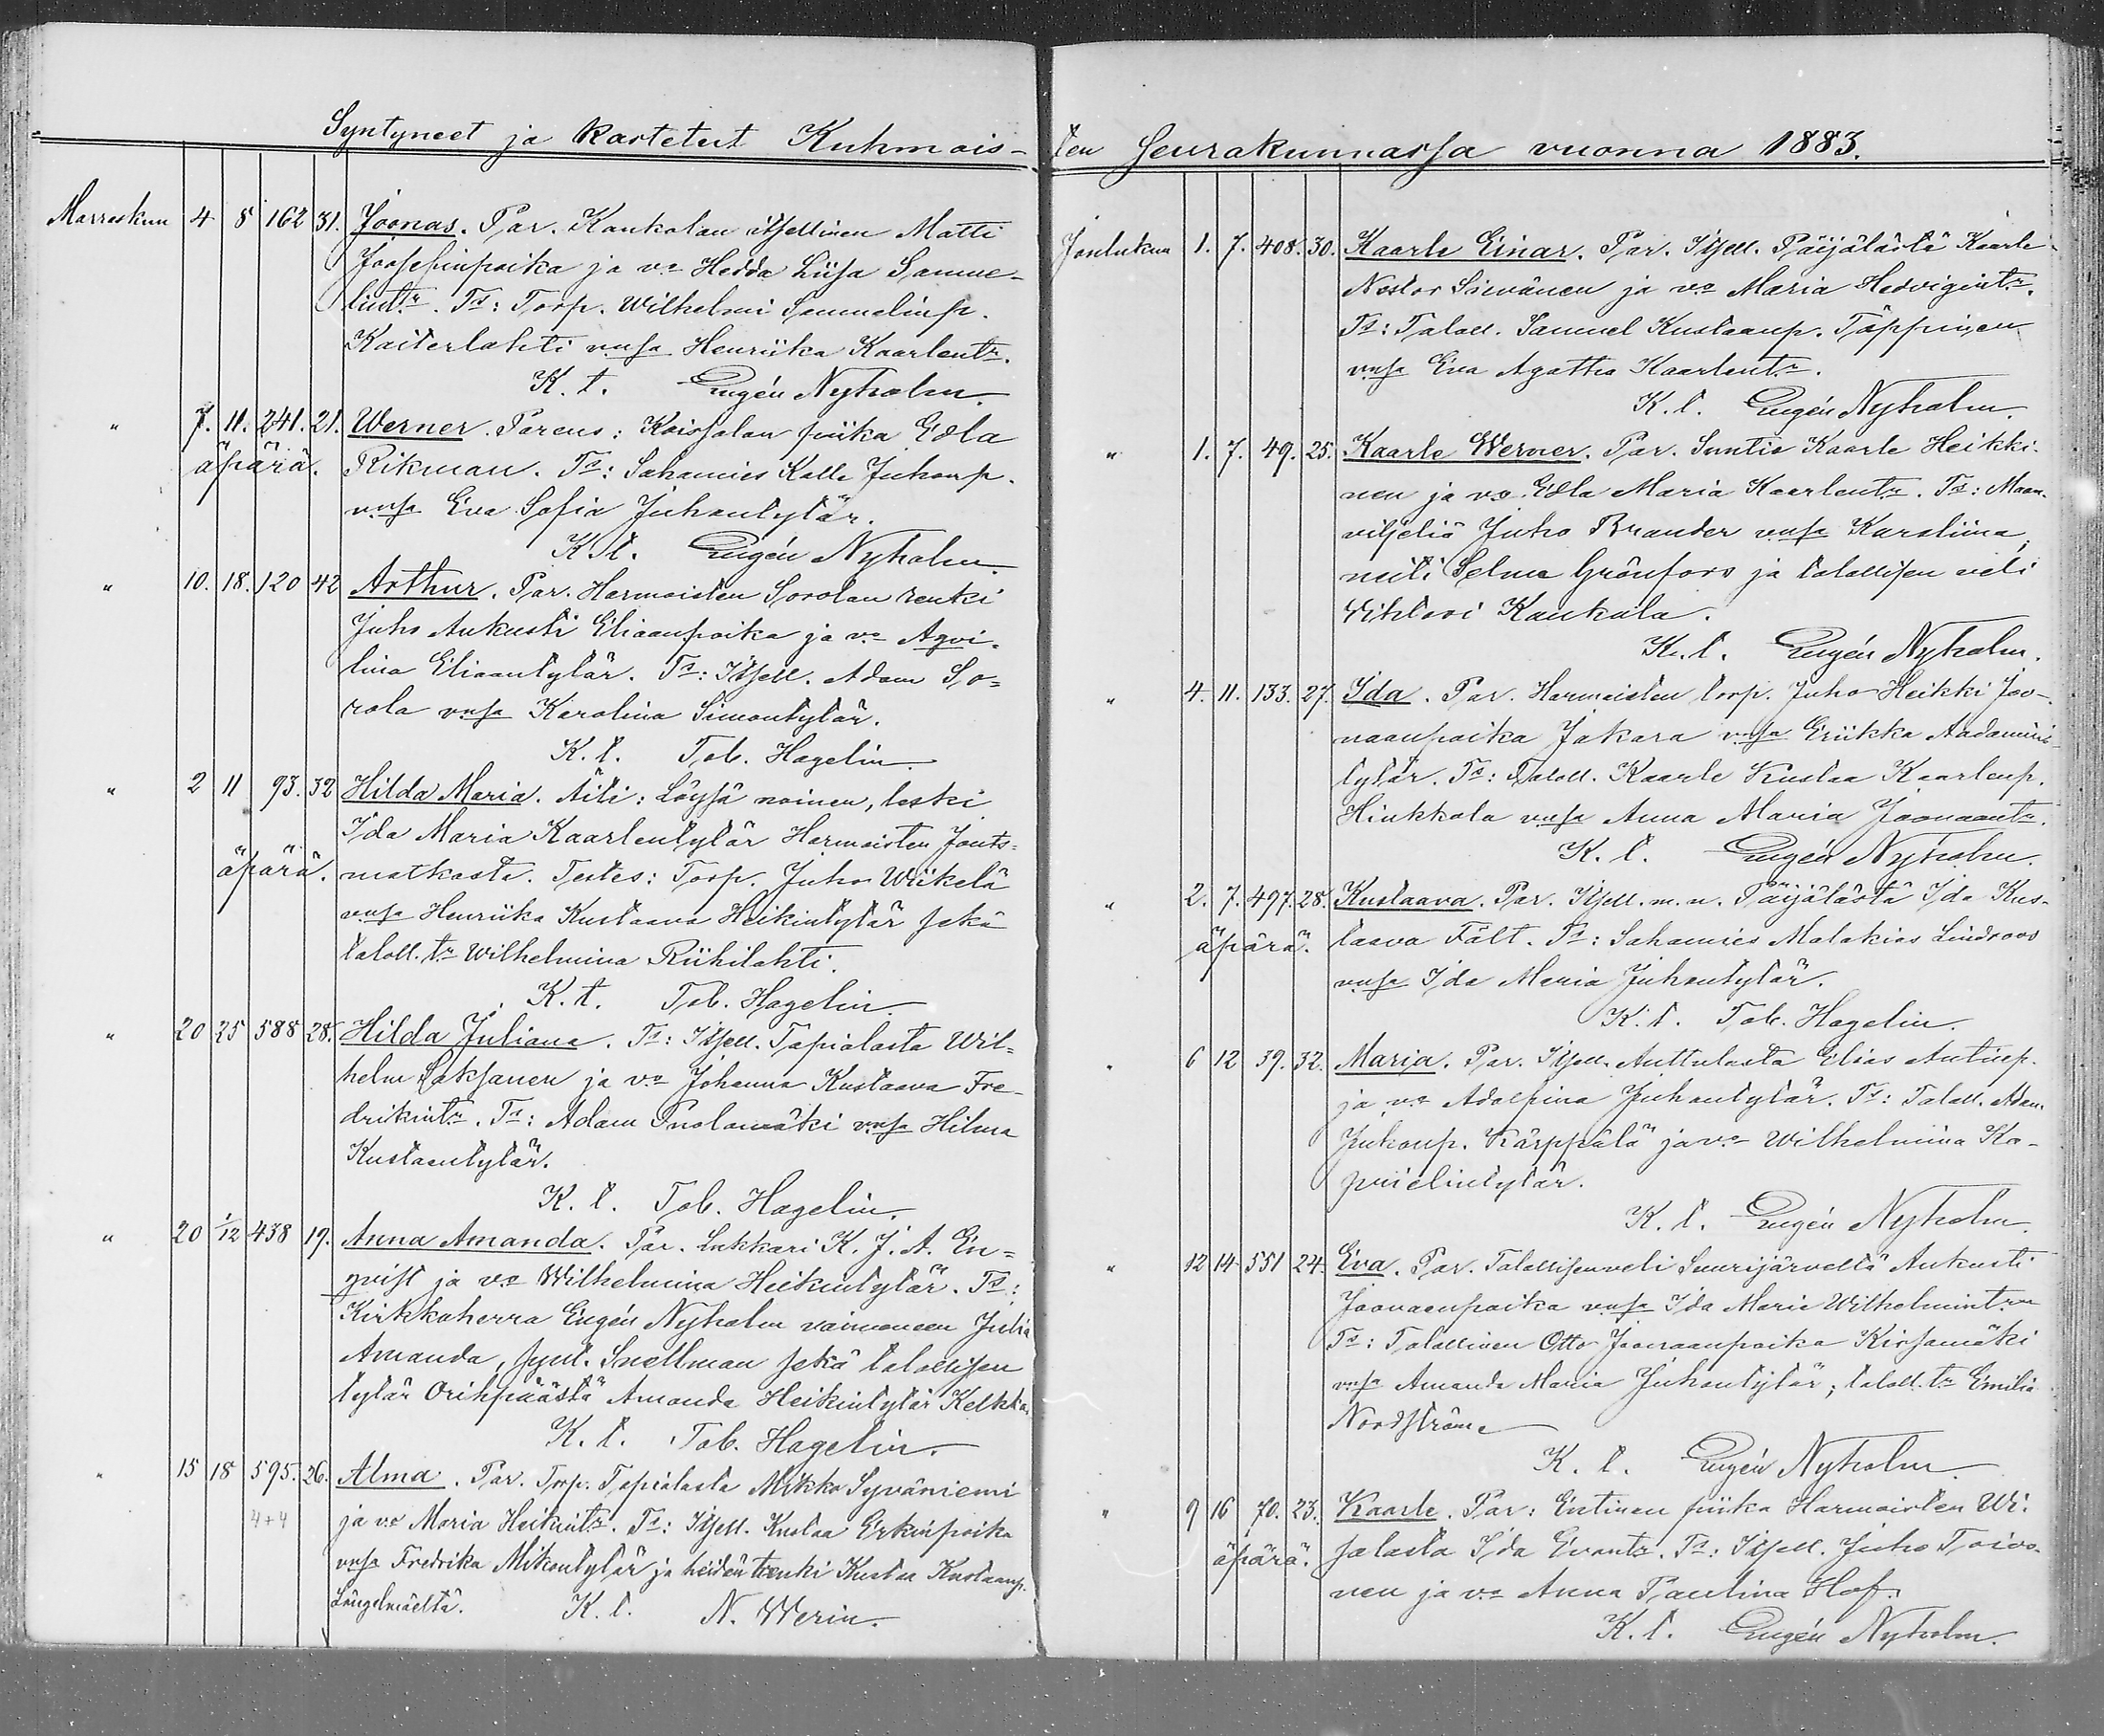 Syntyneet ja kastetut Kuhmois-
Marraskuu 4 8 162 31. Joonas. Par. Kaukolan itsellinen Matti
Joosefinpoika ja vo Hedda Liisa Samue-
lintr. Ts: Torp. Wilhelmi Samuelinp.
Kaiterlahti vnsa Henriika Kaarlentr.
K. t. Eugén Nyholm.
" 7. 11. 241. 21. Werner. Parens: Kaivjalan piika Edla
äpärä. Rikman. Ts: Sahamies Kalle Juhonp.
vnsa Eva Sofia Juhontytär.
K. t. Eugén Nyholm.
" 10. 18. 120 42 Arthur. Par. Harmoisten Sorolan renki
Juho Aukusti Eliaanpoika ja vo Aqvi-
lina Eliaantytär. Ts: Itsell. Adam So=
rola vnsa Karolina Simontytär.
K. t. Tob. Hagelin.
" 2 11 93. 32 Hilda Maria. Äiti: Löysä nainen, leski
Ida Maria Kaarlentytär Harmoisten Jouts=
äpärä. matkasta. Testes: Torp. Juho Wiikelä
vnsa Henriika Kustaava Heikintytär sekä
taloll. tr Wilhelmina Riihilahti.
K. t. Tob. Hagelin.
" 20 25 588 28. Hilda Juliana. Ts: Itsell. Tapialasta Wil=
helm Saksanen ja vo Johanna Kustaava Fre-
drikintr. Ts: Adam Puolamäki vnsa Hilma
Kustaantytär.
K. t. Tob. Hagelin.
" 20 1/12 438 19. Anna Amanda. Par. Lukkari K. J. A. En=
qvist ja vo Wilhelmina Heikintytär. Ts:
Kirkkoherra Eugén Nyholm vaimoneen Julia
Amanda, synt. Snellman sekä talollisen
tytär Orihpäästä Amanda Heikintytär Kelkka.
K. t. Tob. Hagelin.
" 15 18 595. 26. Alma. Par. Torp. Tapialasta Mikko Syväniemi
4+4 ja vo Maria Heikintr. Ts: Itsell. Kustaa Erkinpoika
vnsa Fredrika Mikontytär ja heidän renki Kustaa Kustaanp.
Längelmäeltä. K. t. N. Werin.
ten Seurakunnassa vuonna 1883.
Joulukuu 1. 7. 408. 30. Kaarle Einar. Par. Itsell. Päijälästä Kaarle
Nestor Sirvänen ja vo Maria Hedvigintr.
Ts: Taloll. Samuel Kustaanp. Töppinen
vnsa Eva Agatha Kaarlentr.
K. t. Eugén Nyholm.
" 1. 7. 49. 25. Kaarle Werner. Par. Suntio Kaarle Heikki-
nen ja vo Edla Maria Kaarlentr. Ts: Maan-
viljeliä Juho Brander vnsa Karoliina,
neiti Selma Grönfors ja talollisen veli
Wihtori Kaukola.
K. t. Eugén Nyholm.
" 4. 11. 133. 27. Ida. Par. Harmoisten torp. Juho Heikki Joo-
naanpoika Jakara vnsa Eriikka Aadamin-
tytär. Ts: Taloll. Kaarle Kustaa Kaarlenp.
Hinkkala vnsa Anna Maria Joonaantr.
K. t. Eugén Nyholm.
" 2. 7. 497. 28. Kustaava. Par. Itsell. m. n. Päijälästä Ida Kus-
äpärä. taava Fält. Ts: Sahamies Malakias Lindroos
vnsa Ida Maria Juhontytär.
K. t. Tob. Hagelin.
" 6 12 39. 32. Maria. Par. Itsell. Auttulasta Elias Antinp.
ja vo Adolfina Juhontytär. Ts: Taloll. Adam
Juhonp. Kärppälä ja vo Wilhelmiina Ka-
prielintytär.
K. t. Eugén Nyholm.
" 12 14 551 24. Eva. Par. Talollisenveli Suurijärveltä Aukusti
Joonaanpoika vnsa Ida Maria Wilhelmintr
Ts: Talollinen Otto Joonaanpoika Kirsamäki
vnsa Amanda Maria Juhontytär, taloll. tr Emilia
Nordström
K. t. Eugén Nyholm.
" 9 16 70. 23. Kaarle. Par: Entinen piika Harmoisten Wi-
äpärä. salasta Ida Evantr. Ts: Itsell. Juho Toivo-
nen ja vo Anna Pauliina Hof.
K. t. Eugén Nyholm.